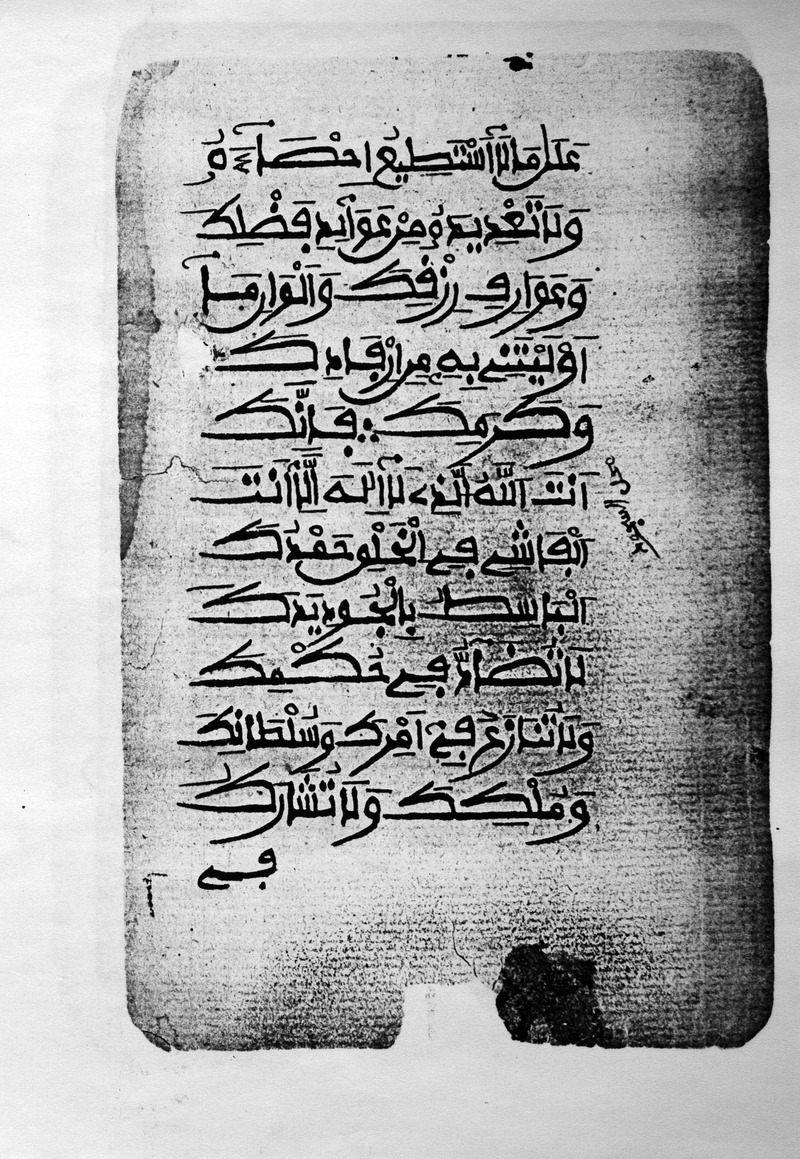 عَلَى مَا لَآ أَسْتَطِيعُ احْصَآءَهُ
وَلَا تَعْدِيدَهُ مِنْ عَوَآئِدِ فَضْلِكَ
وَعَوَارِفِ رِزْقِكَ وَأَلْوَانِ مَآ
أَوْلَيْتَنِي بِهِ مِنِ ارْفَادِكَ
وَكَرَمِكَ ∴ فَإِنَّكَ
أَنتَ اَللَّهُ اَلَّذِي لَآ إِلَهَ إِلَّآ أَنتَ
اَلْفَاشِي فِي اِلْخَلْقِ حَمْدُكَ
اَلْبَاسِطُ بِالْجُودِ يَدَكَ
لَا تُضَآدُّ فِي حُكْمِكَ
وَلَا تُنَازَعُ فِي أَمْرِكَ وَسُلْطَانِكَ
وَمُلْكِكَ وَلَا تُشَارَكُ
فِي